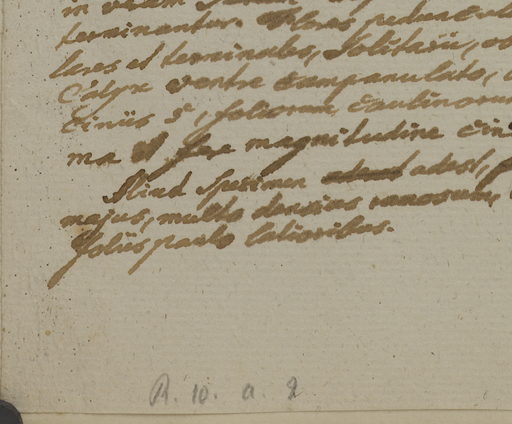 in
terminantur. Flores peduncul
lares et terminales, solitarii,
Calyx ventre campanulato,
ciniis 5, foliorum caulinorum
ma et fere magnitudine
Aliud specimen adest,
majus, multo densius ramosum,
foliis paulo latioribus.
R. 10. a. 2